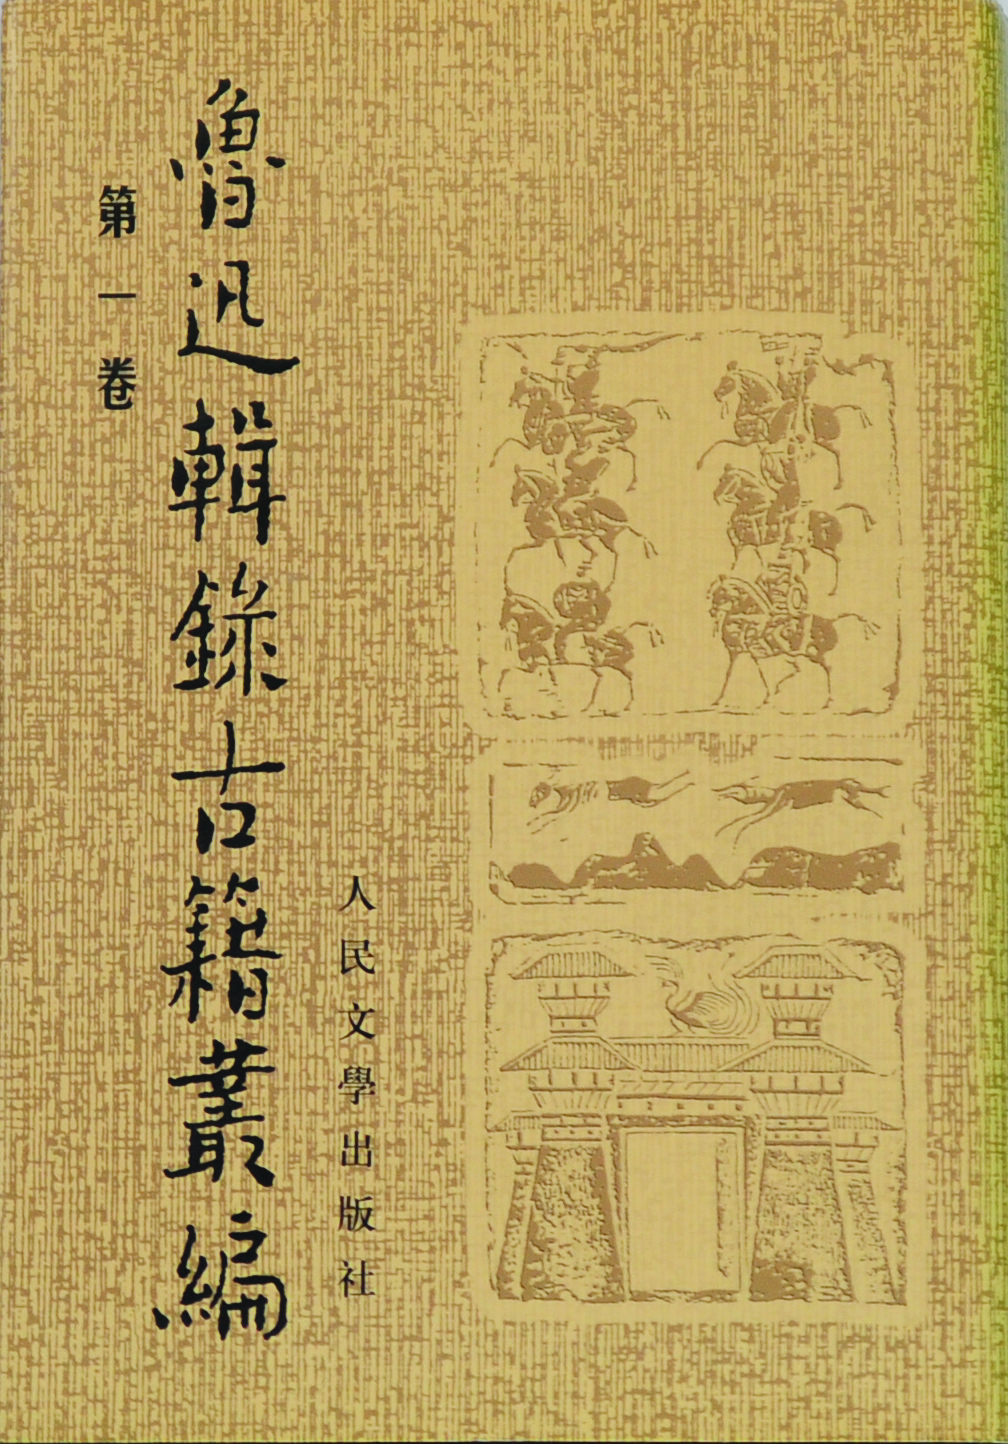 第一卷
魯迅輯錄古籍叢編
人民文學出版社